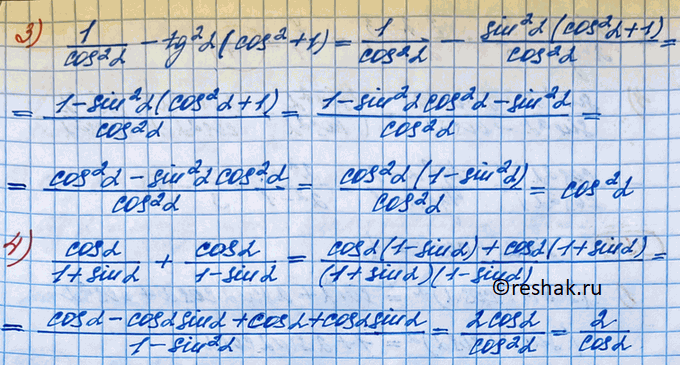 3) 1/cos²α − tg²α(cos²+1) = 1/cos²α − sin²α(cos²α+1)/cos²α =
= (1−sin²α(cos²α+1))/cos²α = (1−sin²α cos²α−sin²α)/cos²α =
= (cos²α − sin²α cos²α)/cos²α = cos²α(1−sin²α)/cos²α = cos²α
4) cosα/(1+sinα) + cosα/(1−sinα) = (cosα(1−sinα)+cosα(1+sinα))/((1+sinα)(1−sinα)) =
©reshak.ru
= (cosα−cosα sinα+cosα+cosα sinα)/(1−sin²α) = 2cosα/cos²α = 2/cosα